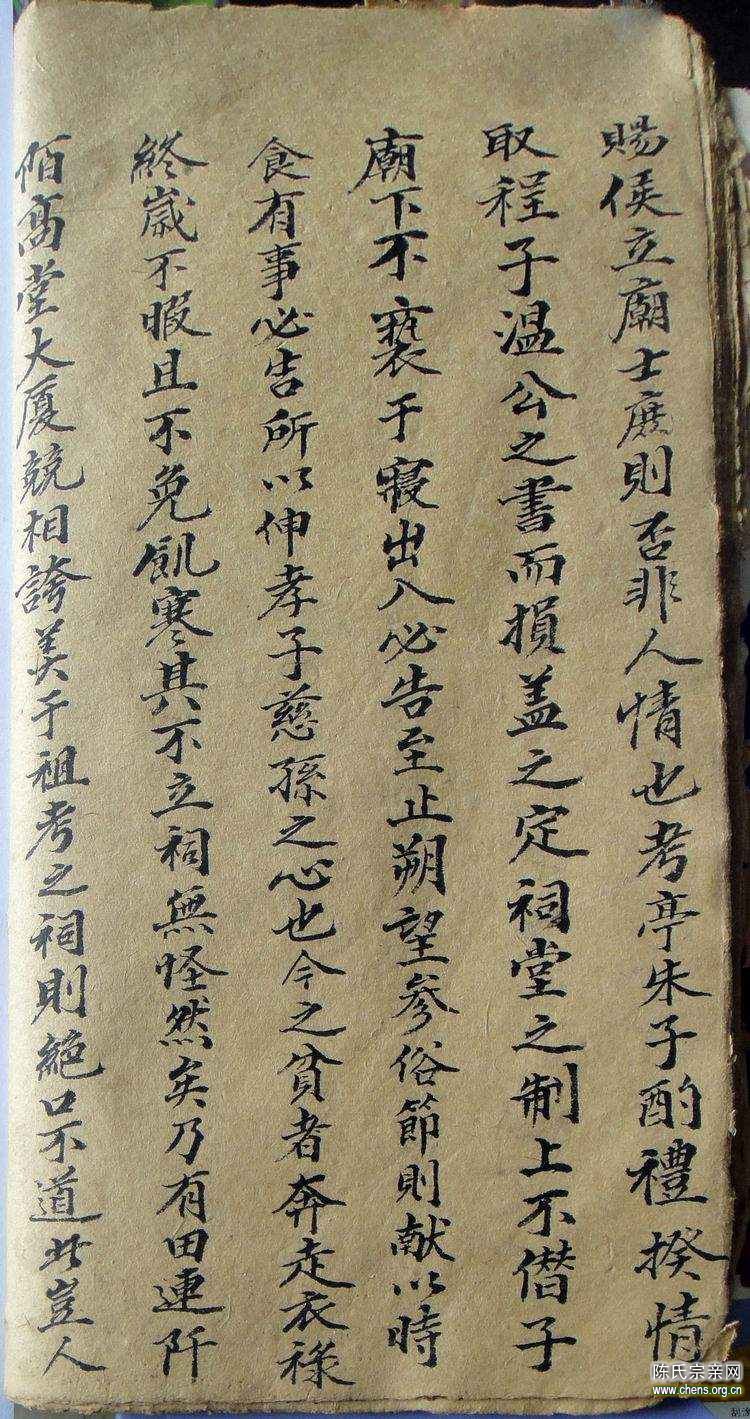 賜侯立廟士庶則否非人情也考亭朱子酌禮揆情
取程子温公之書而損盖之定祠堂之制上不僭子
廟下不褻于寢出入必告至止朔望参俗節則献以時
食有事必告所以伸孝子慈孫之心也今之貧者奔走衣祿
終嵗不暇且不免飢寒其不立祠無怪然矣乃有田連阡
陌高堂大厦競相誇美于祖考之祠則絕口不道此豈人
陈氏宗亲网
www.chens.org.cn